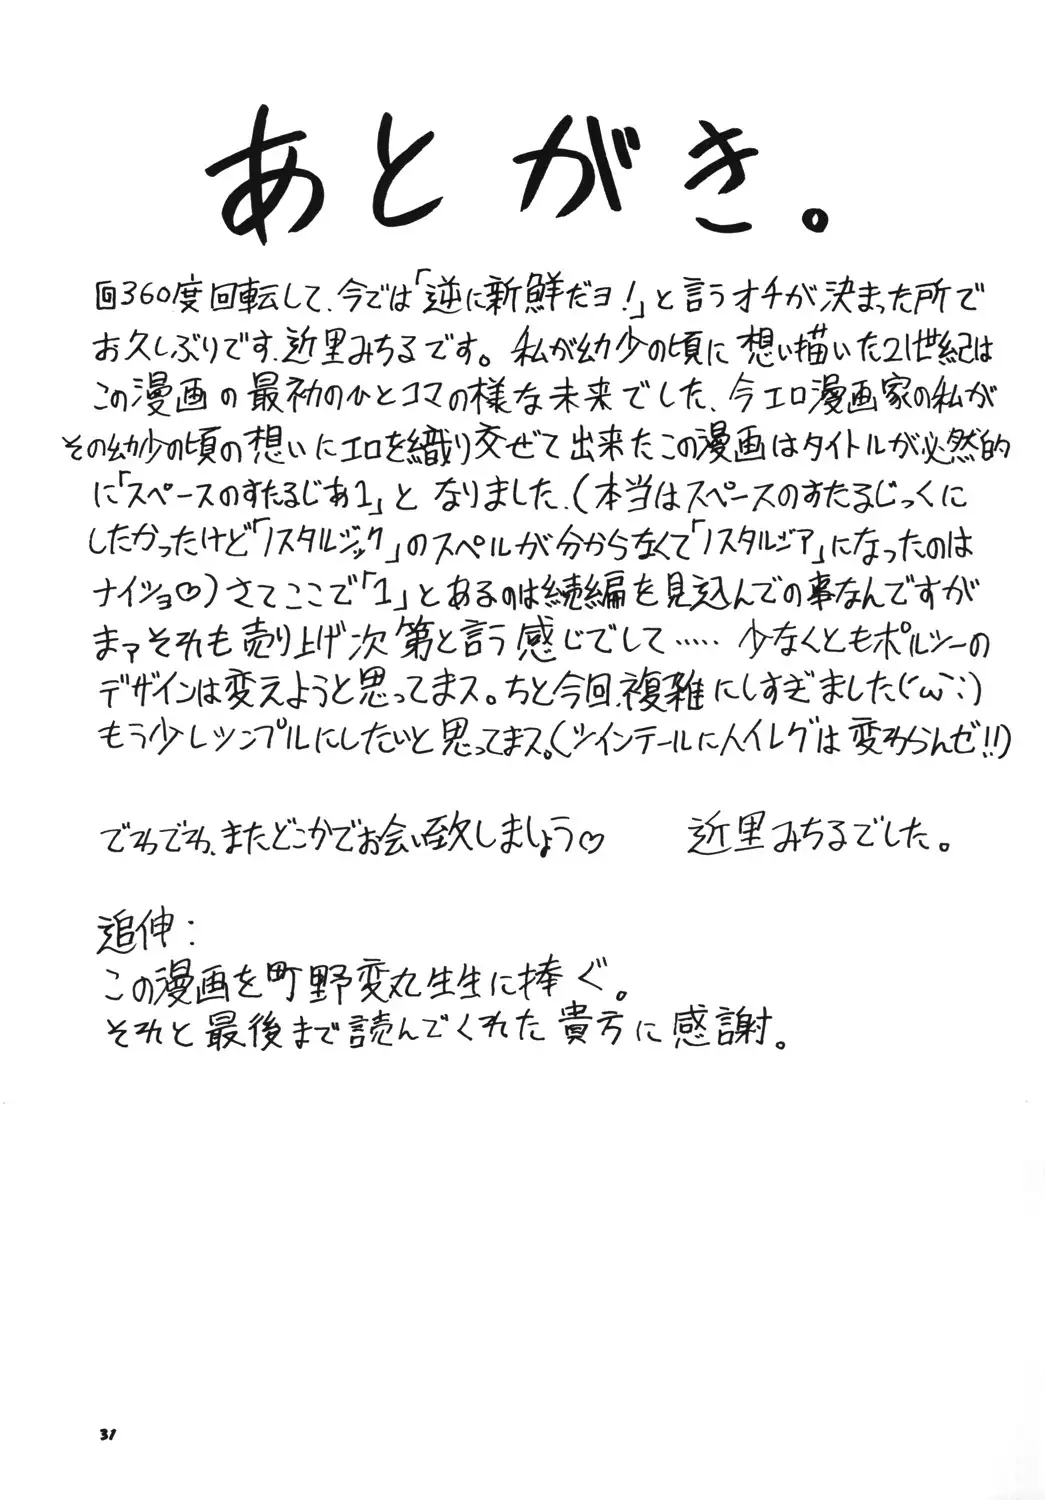 あとがき。
回360度回転して、今では「逆に新鮮だヨ!」と言うオチが決まった所で
お久しぶりです、近里みちるです。私が幼少の頃に想い描いた21世紀は
この漫画の最初のひとコマの様な未来でした、今エロ漫画家の私が
その幼少の頃の想いにエロを織り交ぜて出来たこの漫画はタイトルが必然的
に「スペースのすたるじあ1」となりました、(本当はスペースのすたるじっくに
したかったけど「ノスタルジック」のスペルが分からなくて「ノスタルジア」になったのは
ナイショ♡)さてここで「1」とあるのは続編を見込んでの事なんですが
まァそれも売り上げ次第と言う感じでして……少なくともポルシーの
デザインは変えようと思ってまス。ちと今回、複雑にしすぎました(´ω`;)
もう少しシンプルにしたいと思ってまス。(ツインテールに人イレグは変わらんゼ!!)
でわでわ、またどこかでお会い致しましょう♡ 近里みちるでした。
追伸:
この漫画を町野変丸生生に捧ぐ。
それと最後まで読んでくれた貴方に感謝。
31